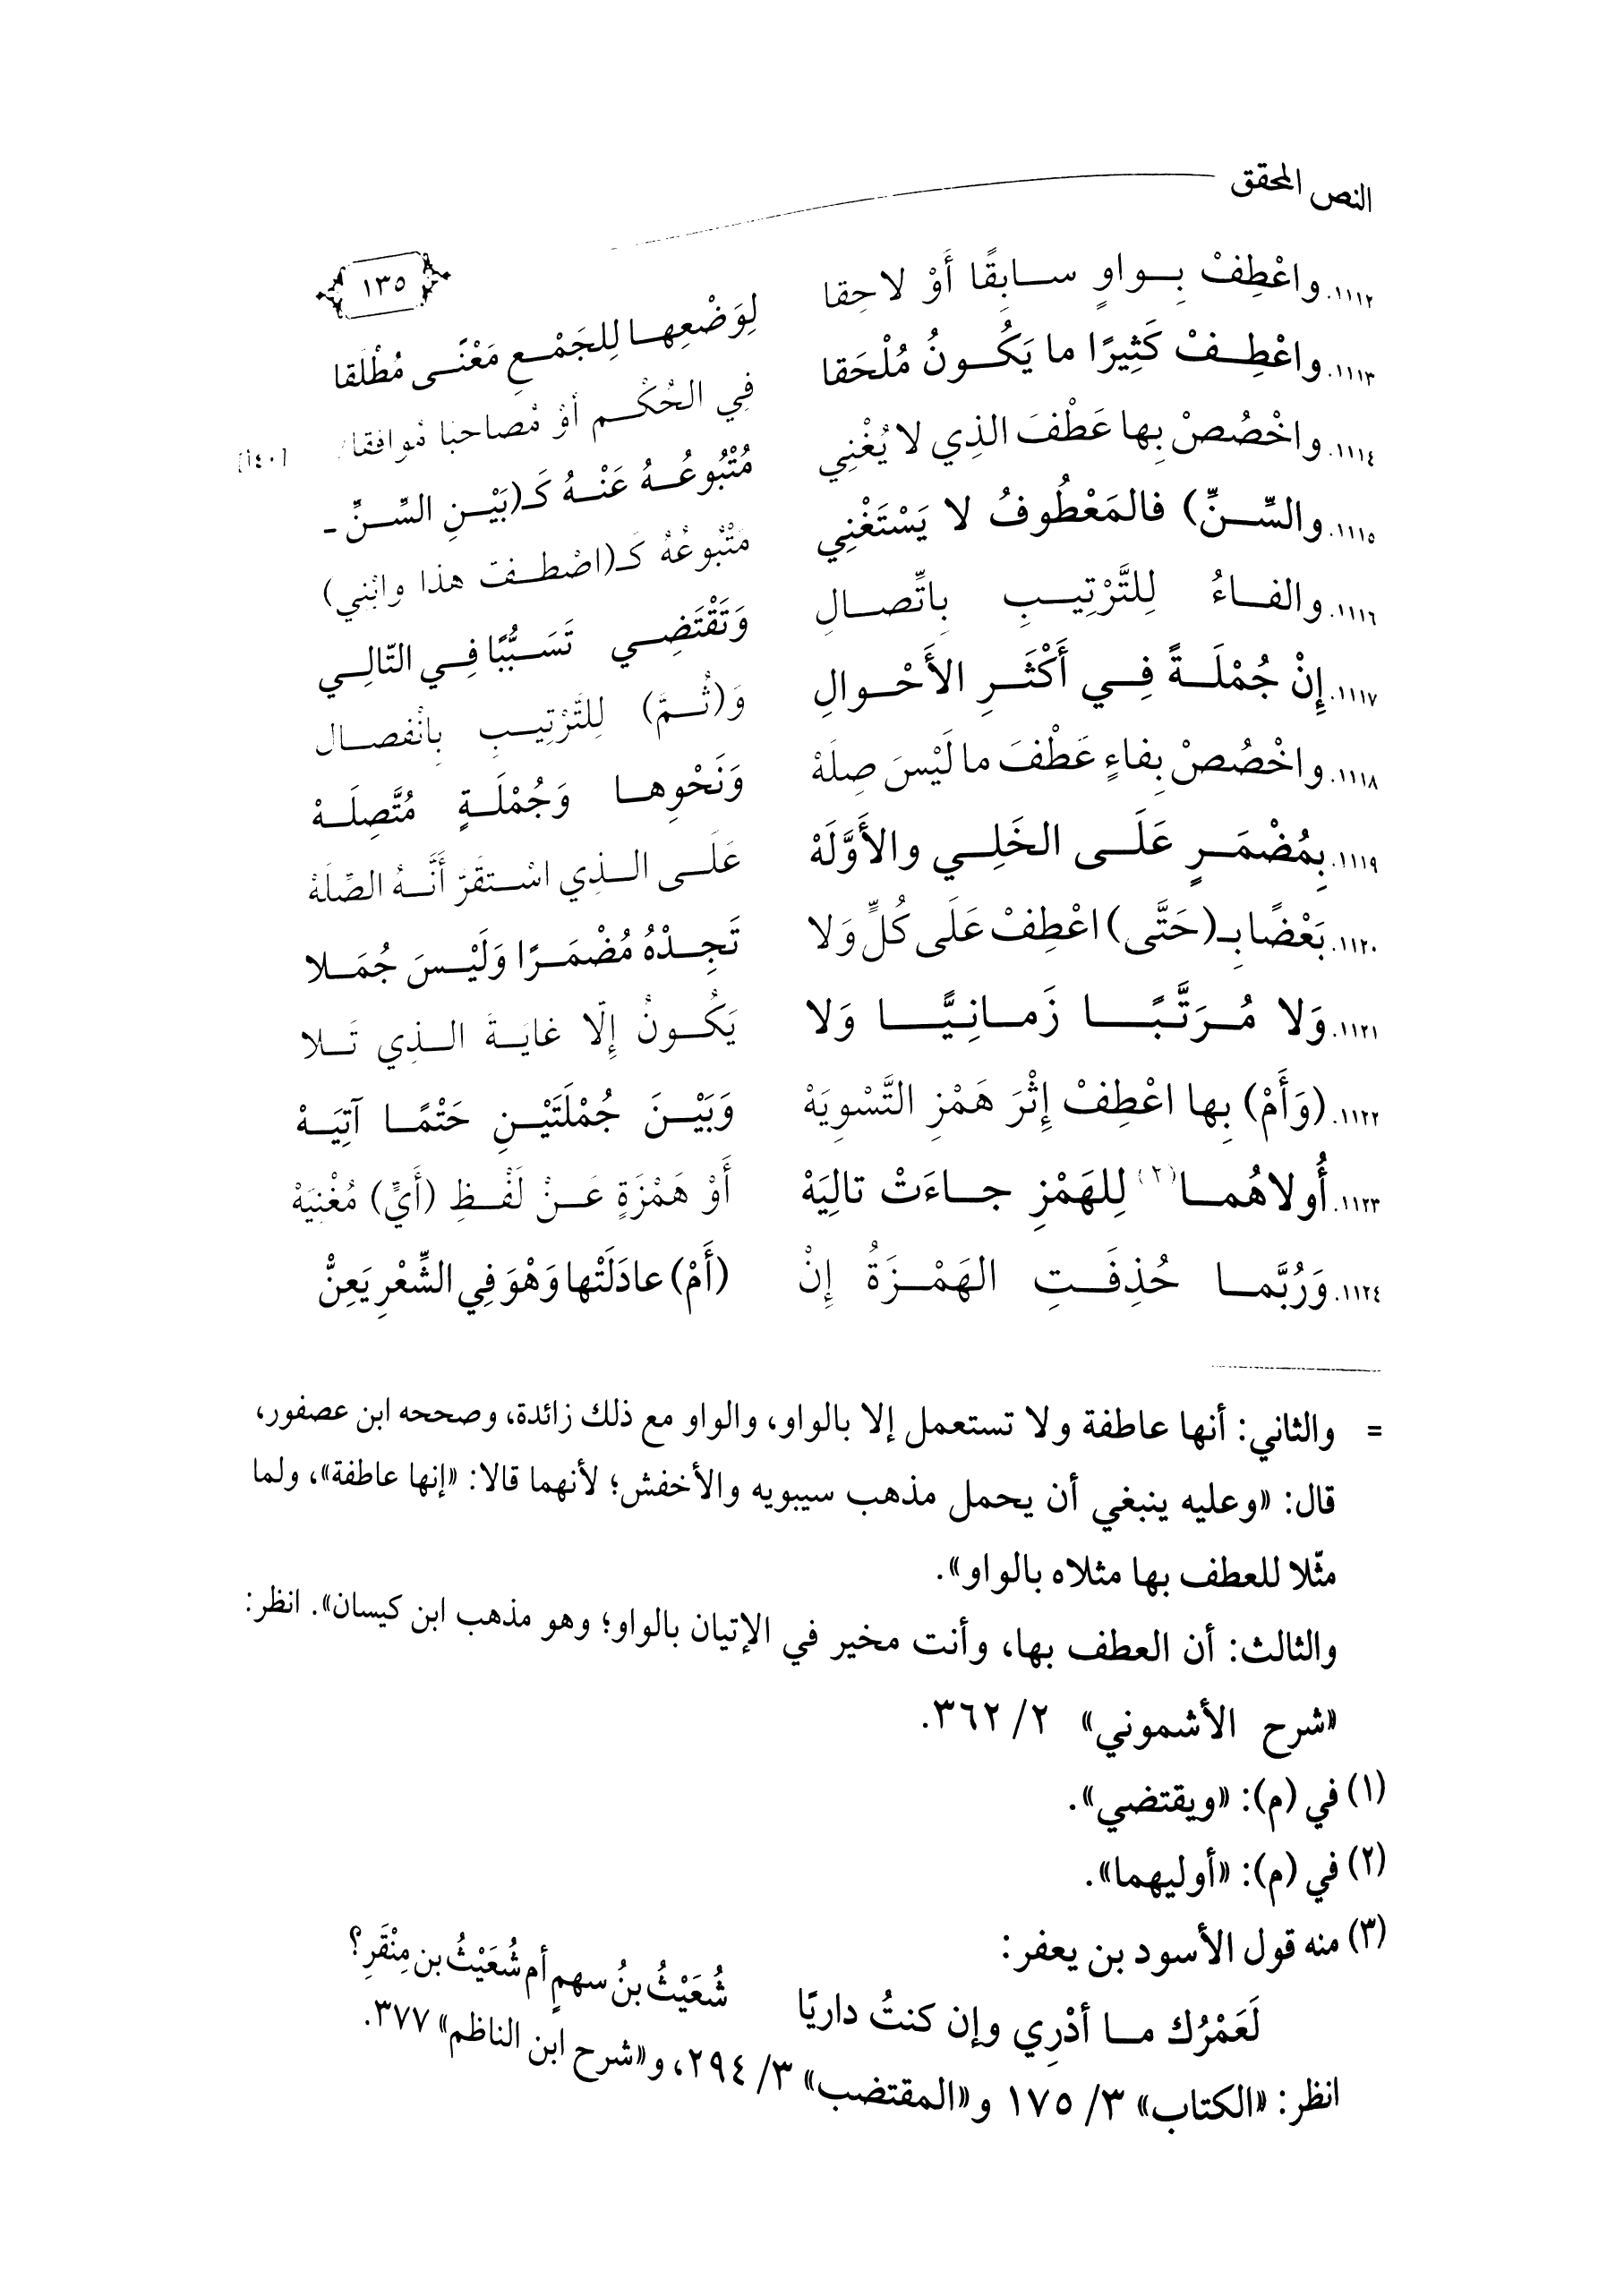 النص المحقق
١٣٥
١١١٢. واعْطِفْ بِـواوٍ سـابِقًا أَوْ لاحِقا لِوَضْعِهـا لِلجَمْـعِ مَعْنًـى مُطْلَقا
١١١٣. واعْطِـفْ كَثِيرًا ما يَكُـونُ مُلْحَقا فِي الحُكْـمِ أوْ مُصاحبًا مُوافقا
[١٤٠أ]
١١١٤. واخْصُصْ بِها عَطْفَ الذِي لا يُغْنِي مَتْبُوعُـهُ عَنْـهُ كَـ(بَيْـنِ السِّـنِّ -
١١١٥. والسِّـنِّ) فالمَعْطُوفُ لا يَسْتَغْنِي مَتْبُوعُهُ كَـ(اصْطـفتَ هذا وابْنِي)
١١١٦. والفـاءُ لِلتَّرْتِيـبِ بِاتِّصـالِ وَتَقْتَضِـي تَسَـبُّبًا فِـي التّالِـي
١١١٧. إِنْ جُمْلَـةً فِـي أَكْثَـرِ الأَحْـوالِ وَ(ثُـمَّ) لِلتَّرْتِيـبِ بِانْفصـال
١١١٨. واخْصُصْ بِفاءٍ عَطْفَ ما لَيْسَ صِلَهْ وَنَحْوِهـا وَجُمْلَـةٍ مُتَّصِلَـهْ
١١١٩. بِمُضْمَـرٍ عَلَـى الخَلِـي والأَوَّلَهْ عَلَـى الـذِي اسْـتقَرّ أَنَّـهُ الصِّلَهْ
١١٢٠. بَعْضًا بِـ(حَتَّى) اعْطِفْ عَلَى كُلٍّ وَلا تَجِـدْهُ مُضْمَـرًا وَلَيْـسَ جُمَـلا
١١٢١. وَلا مُـرَتَّبًـا زَمـانِـيًّـا وَلا يَكُـونُ إِلّا غايَـةَ الـذِي تَـلا
١١٢٢. (وَأَمْ) بِها اعْطِفْ إِثْرَ هَمْزِ التَّسْوِيَهْ وَبَيْـنَ جُمْلَتَيْـنِ حَتْمًـا آتِيَـهْ
١١٢٣. أُولاهُمـا(٢) لِلهَمْزِ جـاءَتْ تالِيَهْ أَوْ هَمْزَةٍ عَـنْ لَفْـظِ (أَيٍّ) مُغْنِيَهْ
١١٢٤. وَرُبَّمـا حُذِفَـتِ الهَمْـزَةُ إِنْ (أَمْ) عادَلَتْها وَهْوَ فِي الشِّعْرِ يَعِنّْ
= والثاني: أنها عاطفة ولا تستعمل إلا بالواو، والواو مع ذلك زائدة، وصححه ابن عصفور،
قال: «وعليه ينبغي أن يحمل مذهب سيبويه والأخفش؛ لأنهما قالا: «إنها عاطفة»، ولما
مثّلا للعطف بها مثلاه بالواو».
والثالث: أن العطف بها، وأنت مخير في الإتيان بالواو؛ وهو مذهب ابن كيسان». انظر:
«شرح الأشموني» ٢/ ٣٦٢.
(١) في (م): «ويقتضي».
(٢) في (م): «أوليهما».
(٣) منه قول الأسود بن يعفر:
لَعَمْرُك مـا أدْرِي وإن كنتُ داريًا شُعَيْثُ بنُ سهمٍ أم شُعَيْثُ بن مِنْقَرِ؟
انظر: «الكتاب» ٣/ ١٧٥ و«المقتضب» ٣/ ٢٩٤، و«شرح ابن الناظم» ٣٧٧.